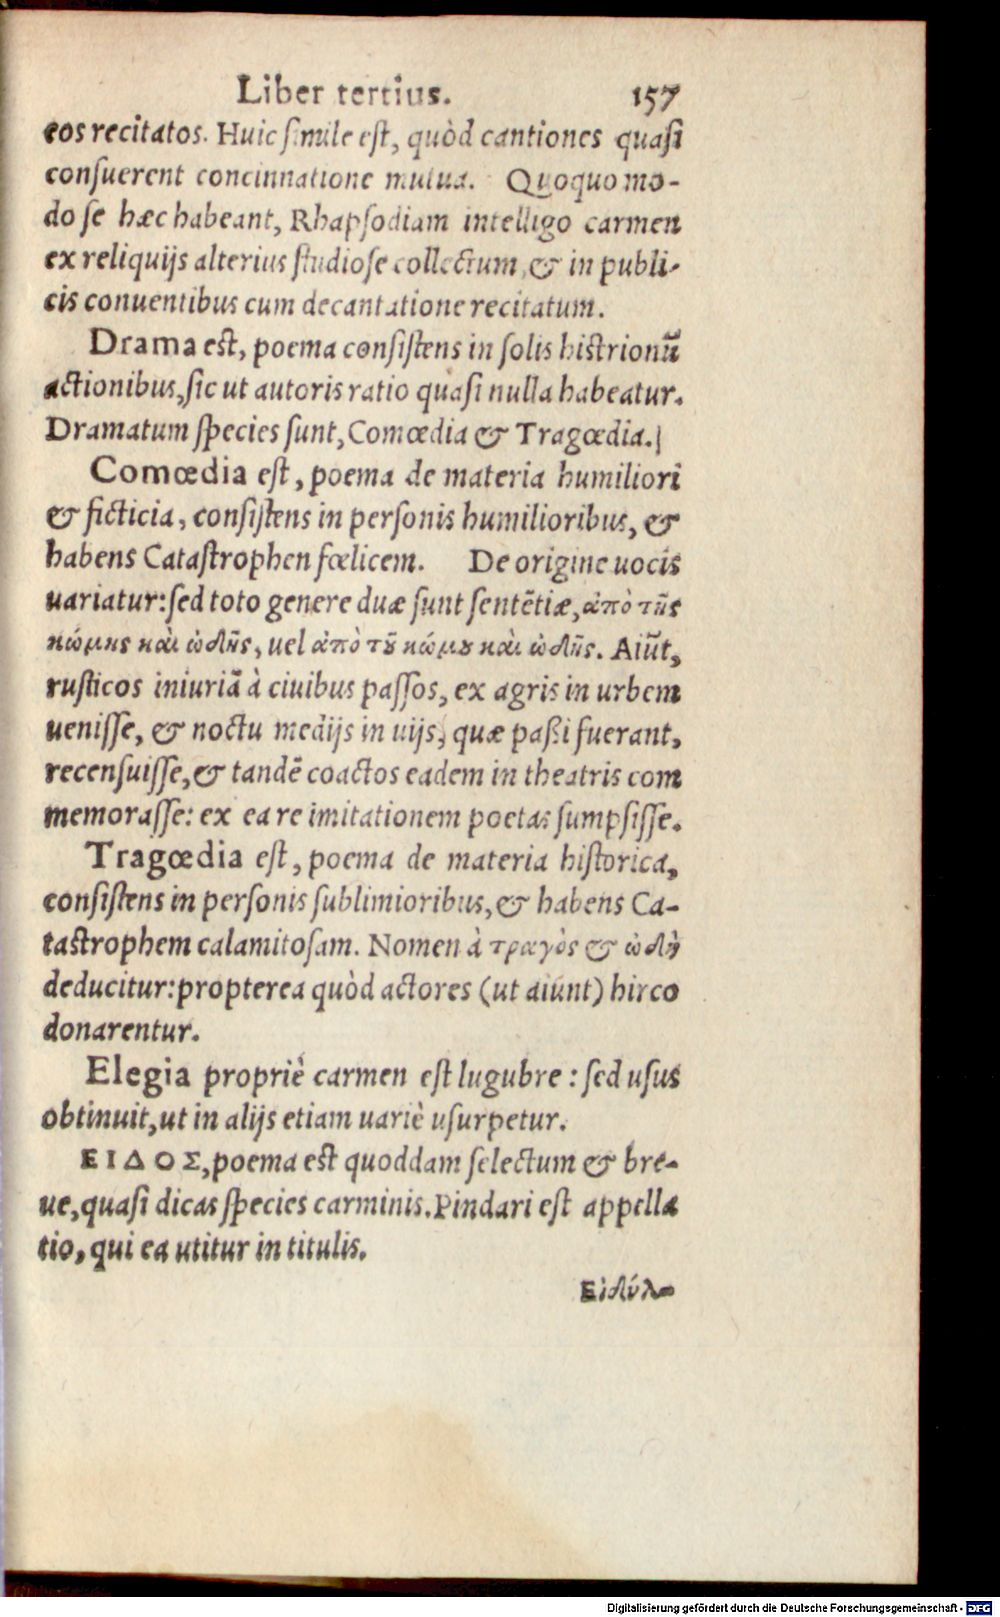 Liber tertius. 157
eos recitatos. Huic simile est, quòd cantiones quasi
consuerent concinnatione mutua. Quoquo mo-
do se hæc habeant, Rhapsodiam intelligo carmen
ex reliquijs alterius studiose collectum, & in publi-
cis conuentibus cum decantatione recitatum.
Drama est, poema consistens in solis histrionũ
actionibus, sic ut autoris ratio quasi nulla habeatur.
Dramatum species sunt, Comœdia & Tragœdia.
Comœdia est, poema de materia humiliori
& ficticia, consistens in personis humilioribus, &
habens Catastrophen fœlicem. De origine uocis
uariatur: sed toto genere duæ sunt sentẽtiæ, ἀπὸ τῆς
κώμης καὶ ὠδῆς, uel ἀπὸ τȣ͂ κώμȣ καὶ ὠδῆς. Aiũt,
rusticos iniuriã à ciuibus passos, ex agris in urbem
uenisse, & noctu medijs in uijs, quæ paßi fuerant,
recensuisse, & tandẽ coactos eadem in theatris com
memorasse: ex ea re imitationem poetas sumpsisse.
Tragœdia est, poema de materia historica,
consistens in personis sublimioribus, & habens Ca-
tastrophem calamitosam. Nomen à τραγὸς & ὠδὴ
deducitur: propterea quòd actores (ut aiunt) hirco
donarentur.
Elegia propriè carmen est lugubre: sed usus
obtinuit, ut in alijs etiam uariè usurpetur.
ΕΙΔΟΣ, poema est quoddam selectum & bre-
ue, quasi dicas species carminis. Pindari est appella
tio, qui ea utitur in titulis.
Εἰδύλ-
Digitalisierung gefördert durch die Deutsche Forschungsgemeinschaft - DFG